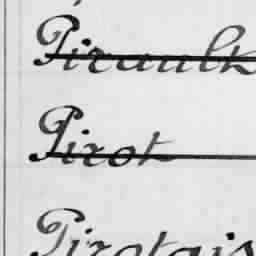 Pirault
Pirot
Pirotais